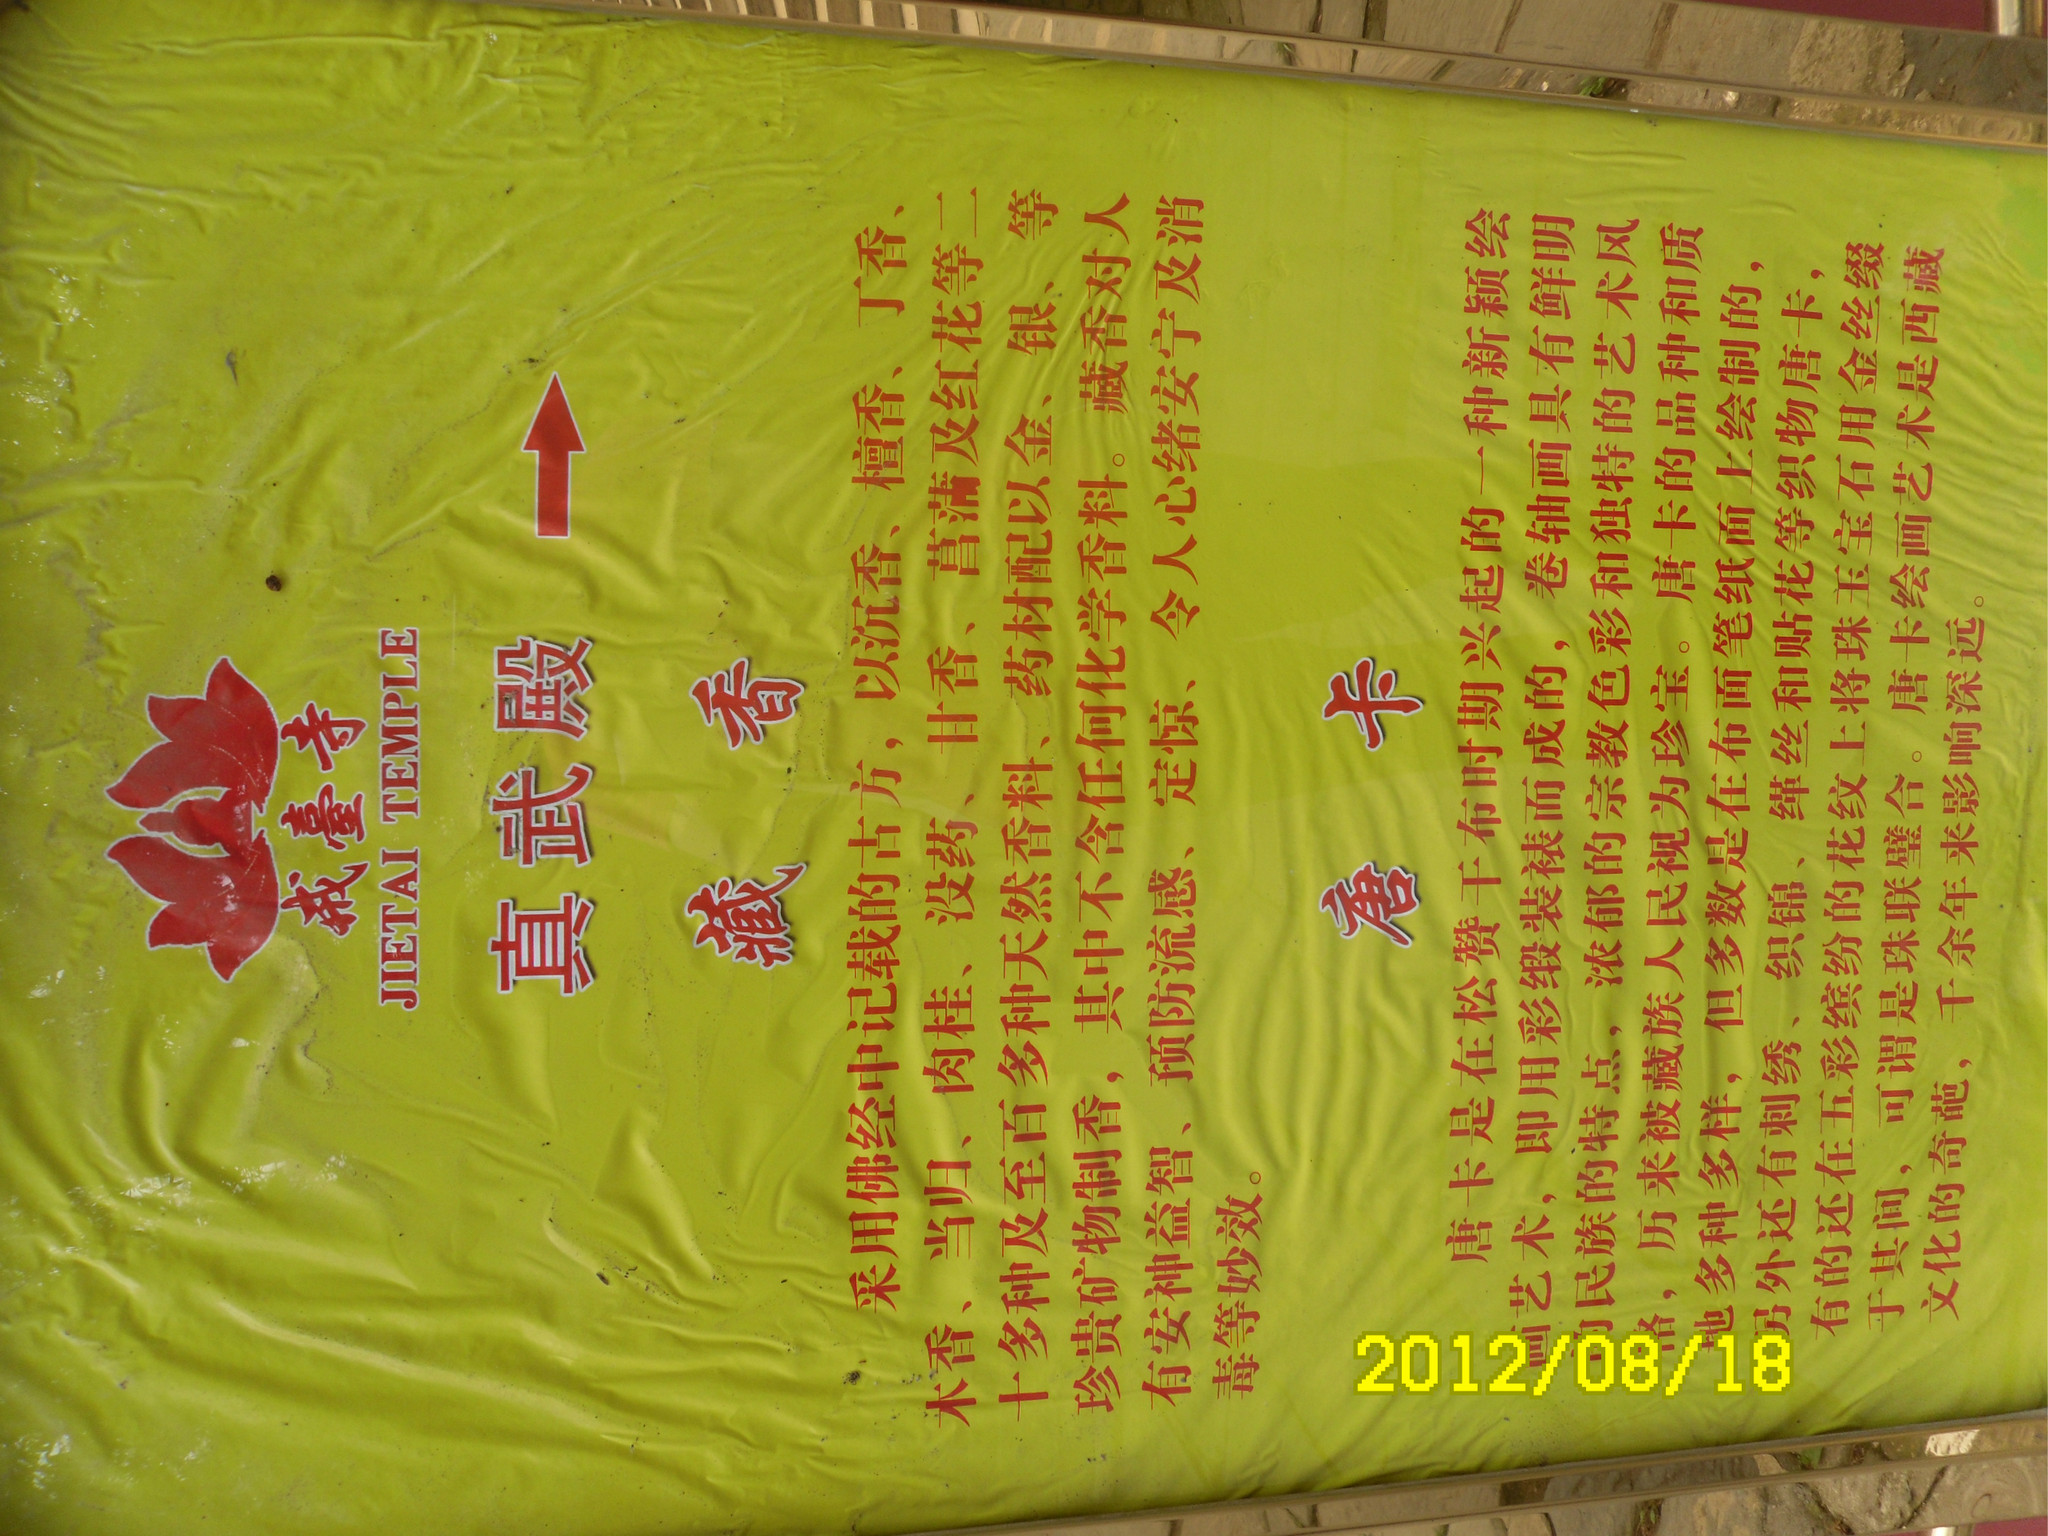 戒臺寺
JIETAI TEMPLE
真武殿
藏香
采用佛经中记载的古方，以沉香、檀香、丁香、
木香、当归、肉桂、没药、甘香、菖蒲及红花等二
十多种及至百多种天然香料、药材配以金、银、等
珍贵矿物制香，其中不含任何化学香料。藏香对人
有安神益智、预防流感、定惊、令人心绪安宁及消
毒等妙效。
唐卡
唐卡是在松赞干布时期兴起的一种新颖绘
画艺术，即用彩缎装裱而成的，卷轴画具有鲜明
的民族的特点，浓郁的宗教色彩和独特的艺术风
格，历来被藏族人民视为珍宝。唐卡的品种和质
地多种多样，但多数是在布面笔纸面上绘制的，
另外还有刺绣、织锦、缂丝和贴花等织物唐卡，
有的还在五彩缤纷的花纹上将珠玉宝石用金丝缀
于其间，可谓是珠联璧合。唐卡绘画艺术是西藏
文化的奇葩，千余年来影响深远。
2012/08/18